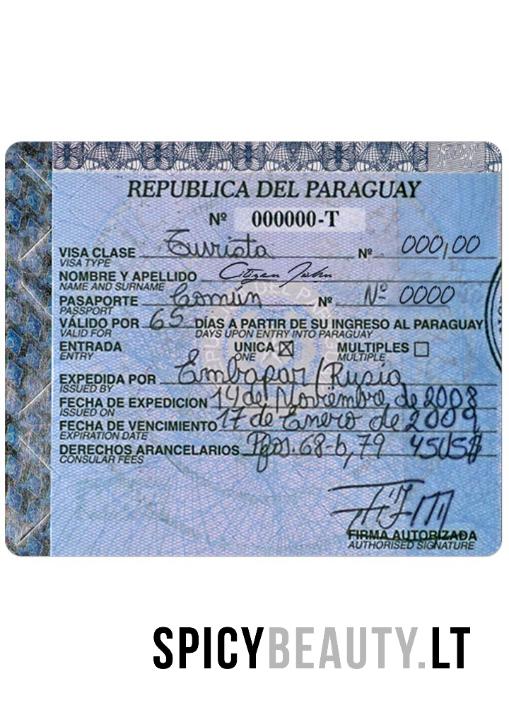 REPUBLICA DEL PARAGUAY
Nº 000000-T
VISA CLASE Turista Nº 000,00
VISA TYPE
NOMBRE Y APELLIDO Citizen John
NAME AND SURNAME
PASAPORTE Común Nº Nº 0000
PASSPORT
VÁLIDO POR 65 DÍAS A PARTIR DE SU INGRESO AL PARAGUAY
VALID FOR DAYS UPON ENTRY INTO PARAGUAY
ENTRADA UNICA ☒ MULTIPLES ☐
ENTRY ONE MULTIPLE
EXPEDIDA POR Embapar/Rusia
ISSUED BY
FECHA DE EXPEDICION 14 de Noviembre de 2008
ISSUED ON
FECHA DE VENCIMIENTO 17 de Enero de 2009
EXPIRATION DATE
DERECHOS ARANCELARIOS 68-b, 79 45U$
CONSULAR FEES
FIRMA AUTORIZADA
AUTHORISED SIGNATURE
SPICYBEAUTY.LT